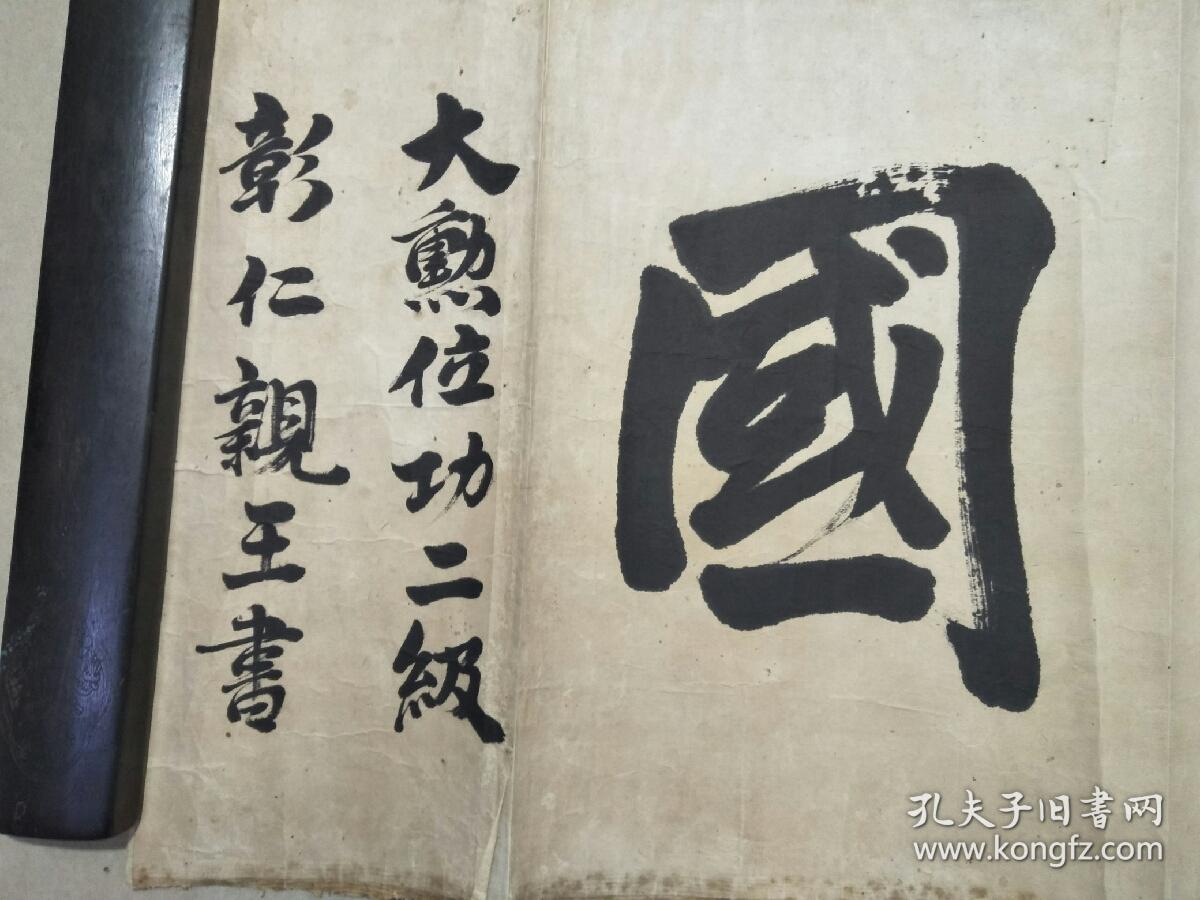 國
大勲位功二級
彰仁親王書
孔夫子旧书网
www.kongfz.com